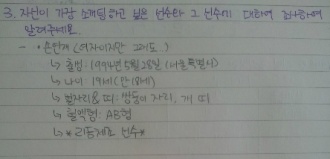 3. 자신이 가장 소개팅하고 싶은 선수와 그 선수에 대하여 하여 알려주세요.
- · 손연재 (여자이지만 그래도)
↳ 출생: 1994년 5월 28일 (서울특별시)
↳ 나이: 19세 (만 18세)
↳ 별자리 & 띠: 쌍둥이 자리, 개띠
↳ 혈액형: AB형
↳ * 리듬체조 선수 *